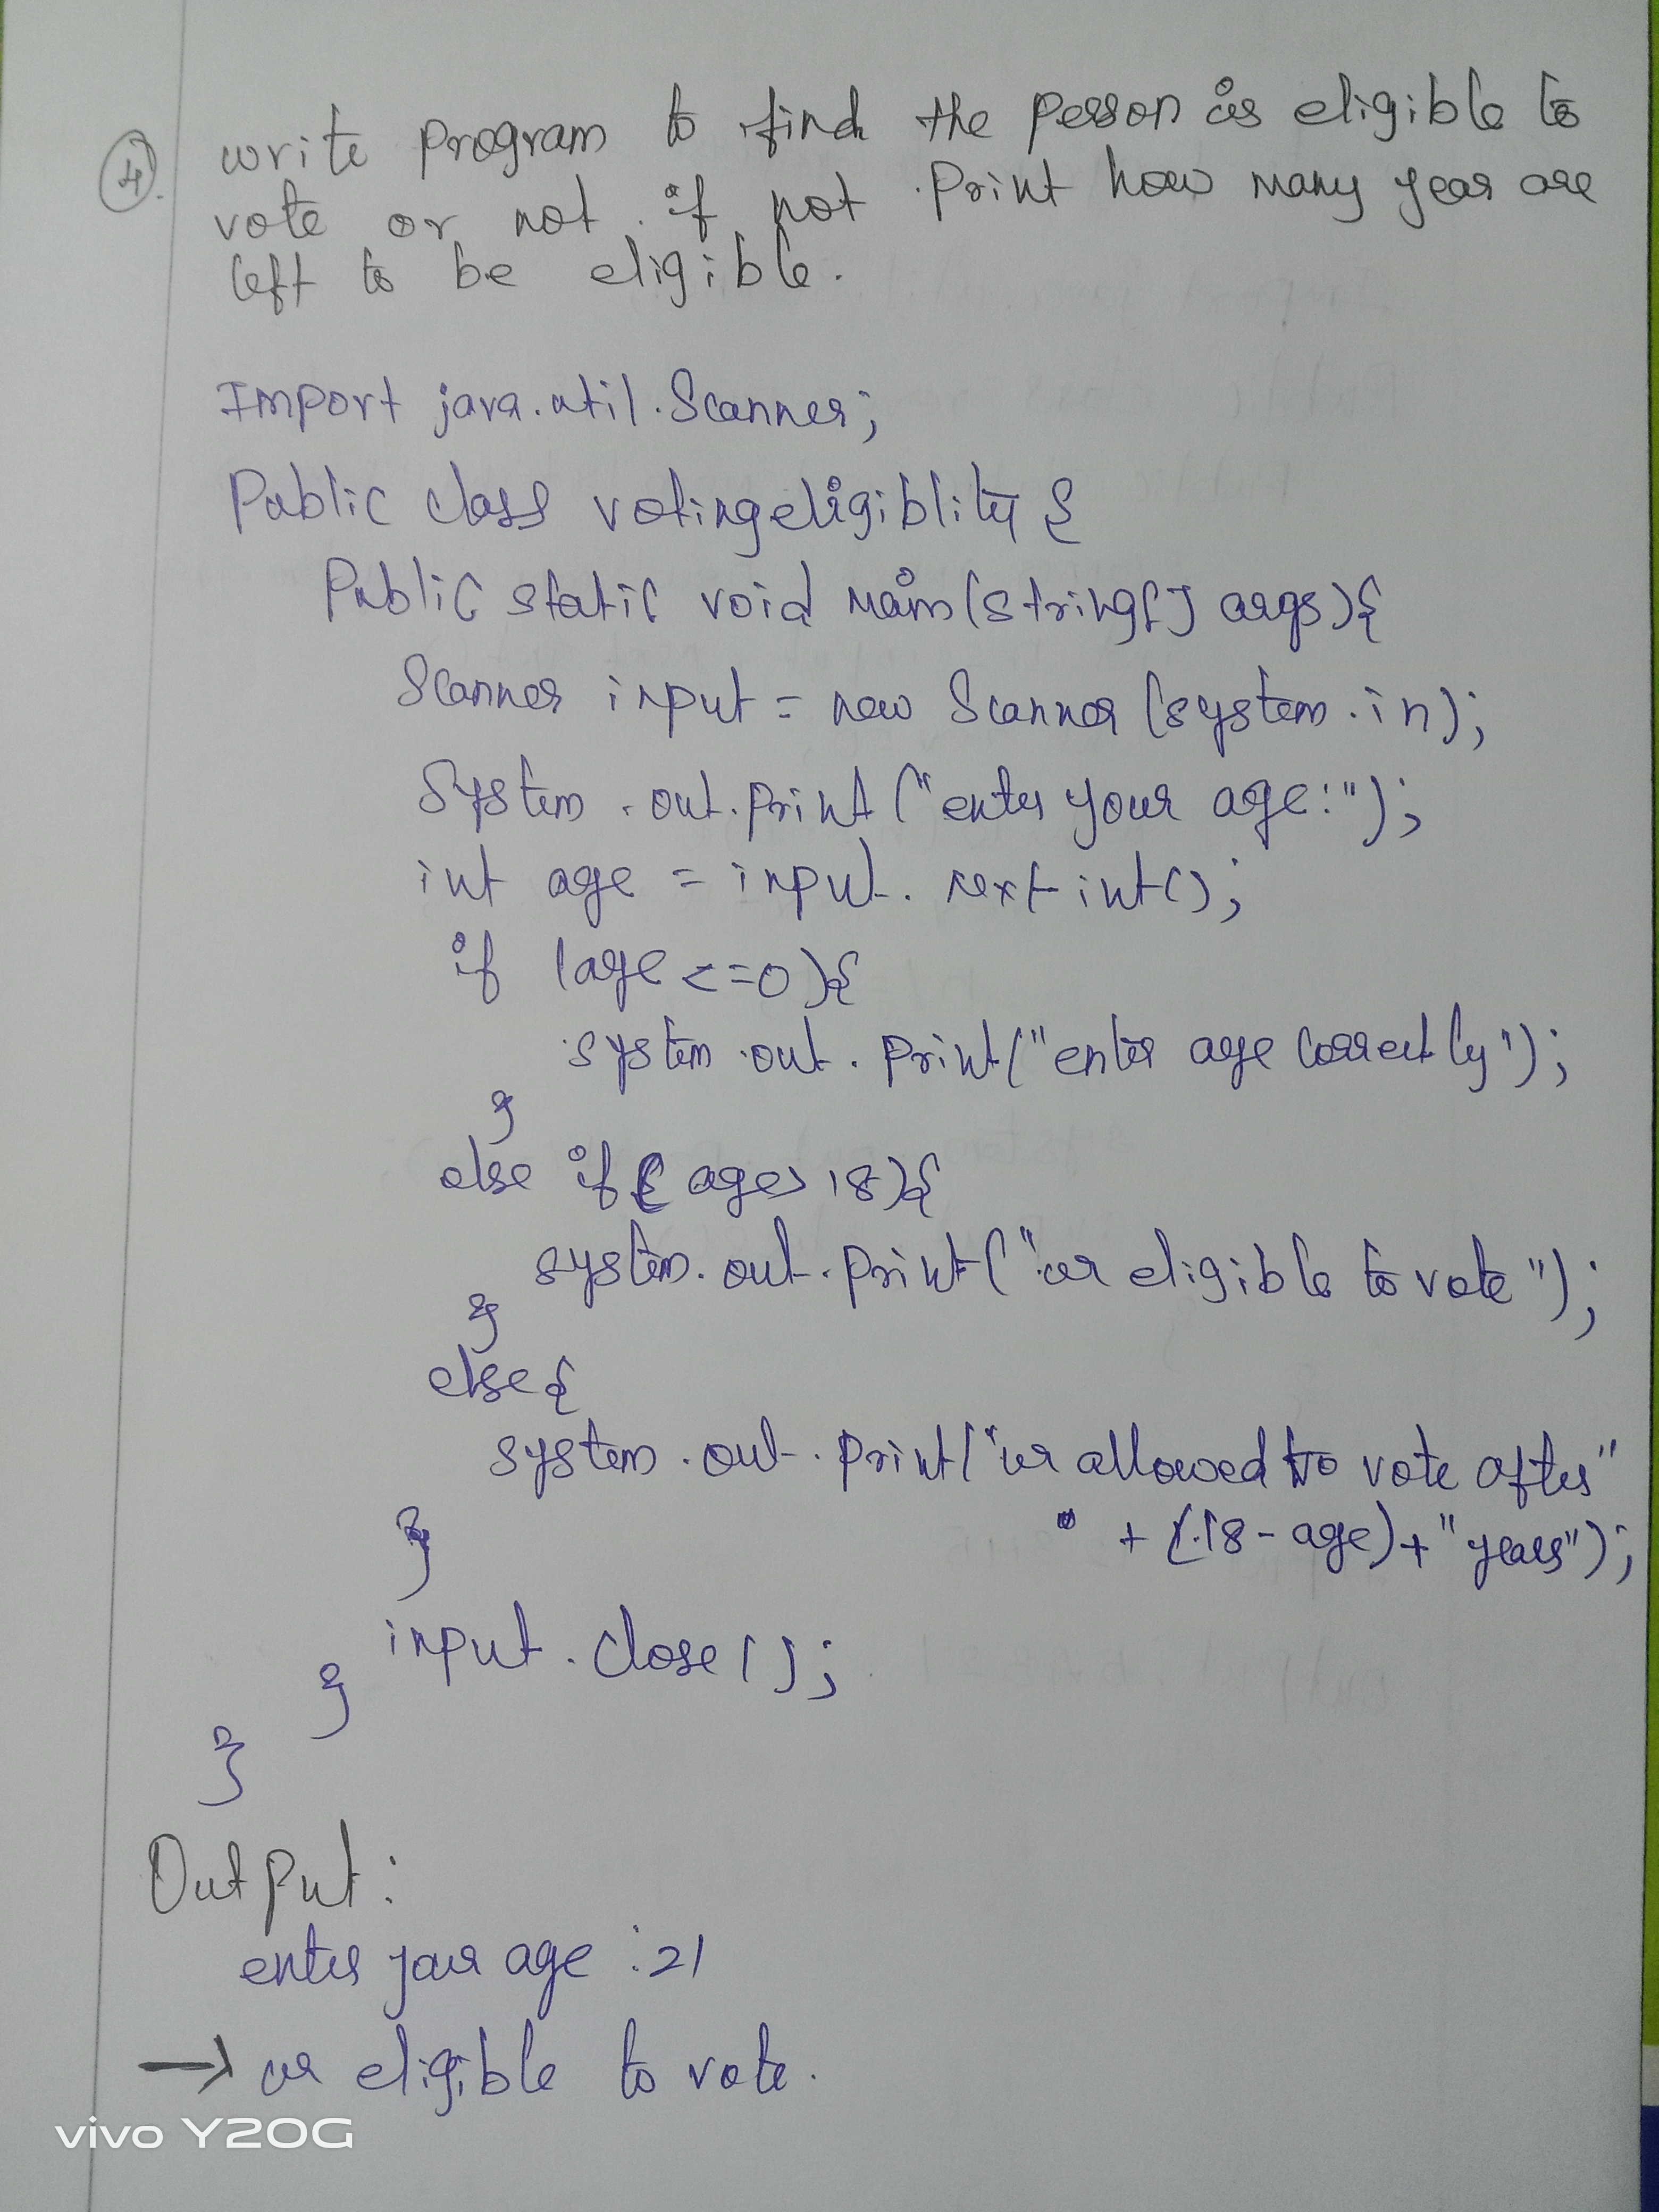 4.
write program to find the person is eligible to
vote or not. if not Print how many year are
left to be eligible.
Import java.util.Scanner;
Public class votingeligiblity {
Public static void main(string[] args){
Scanner input = new Scanner (system.in);
System.out.print("enter your age:");
int age = input.next int();
if (age <=0){
system.out.print("enter age correctly");
}
else if( age> 18){
system.out.print("ur eligible to vote");
}
else{
system.out.print("ur allowed to vote after"
+ (18-age)+"years");
}
input.close();
}
}
Output:
enter your age :21
→ ur eligible to vote.
vivo Y20G